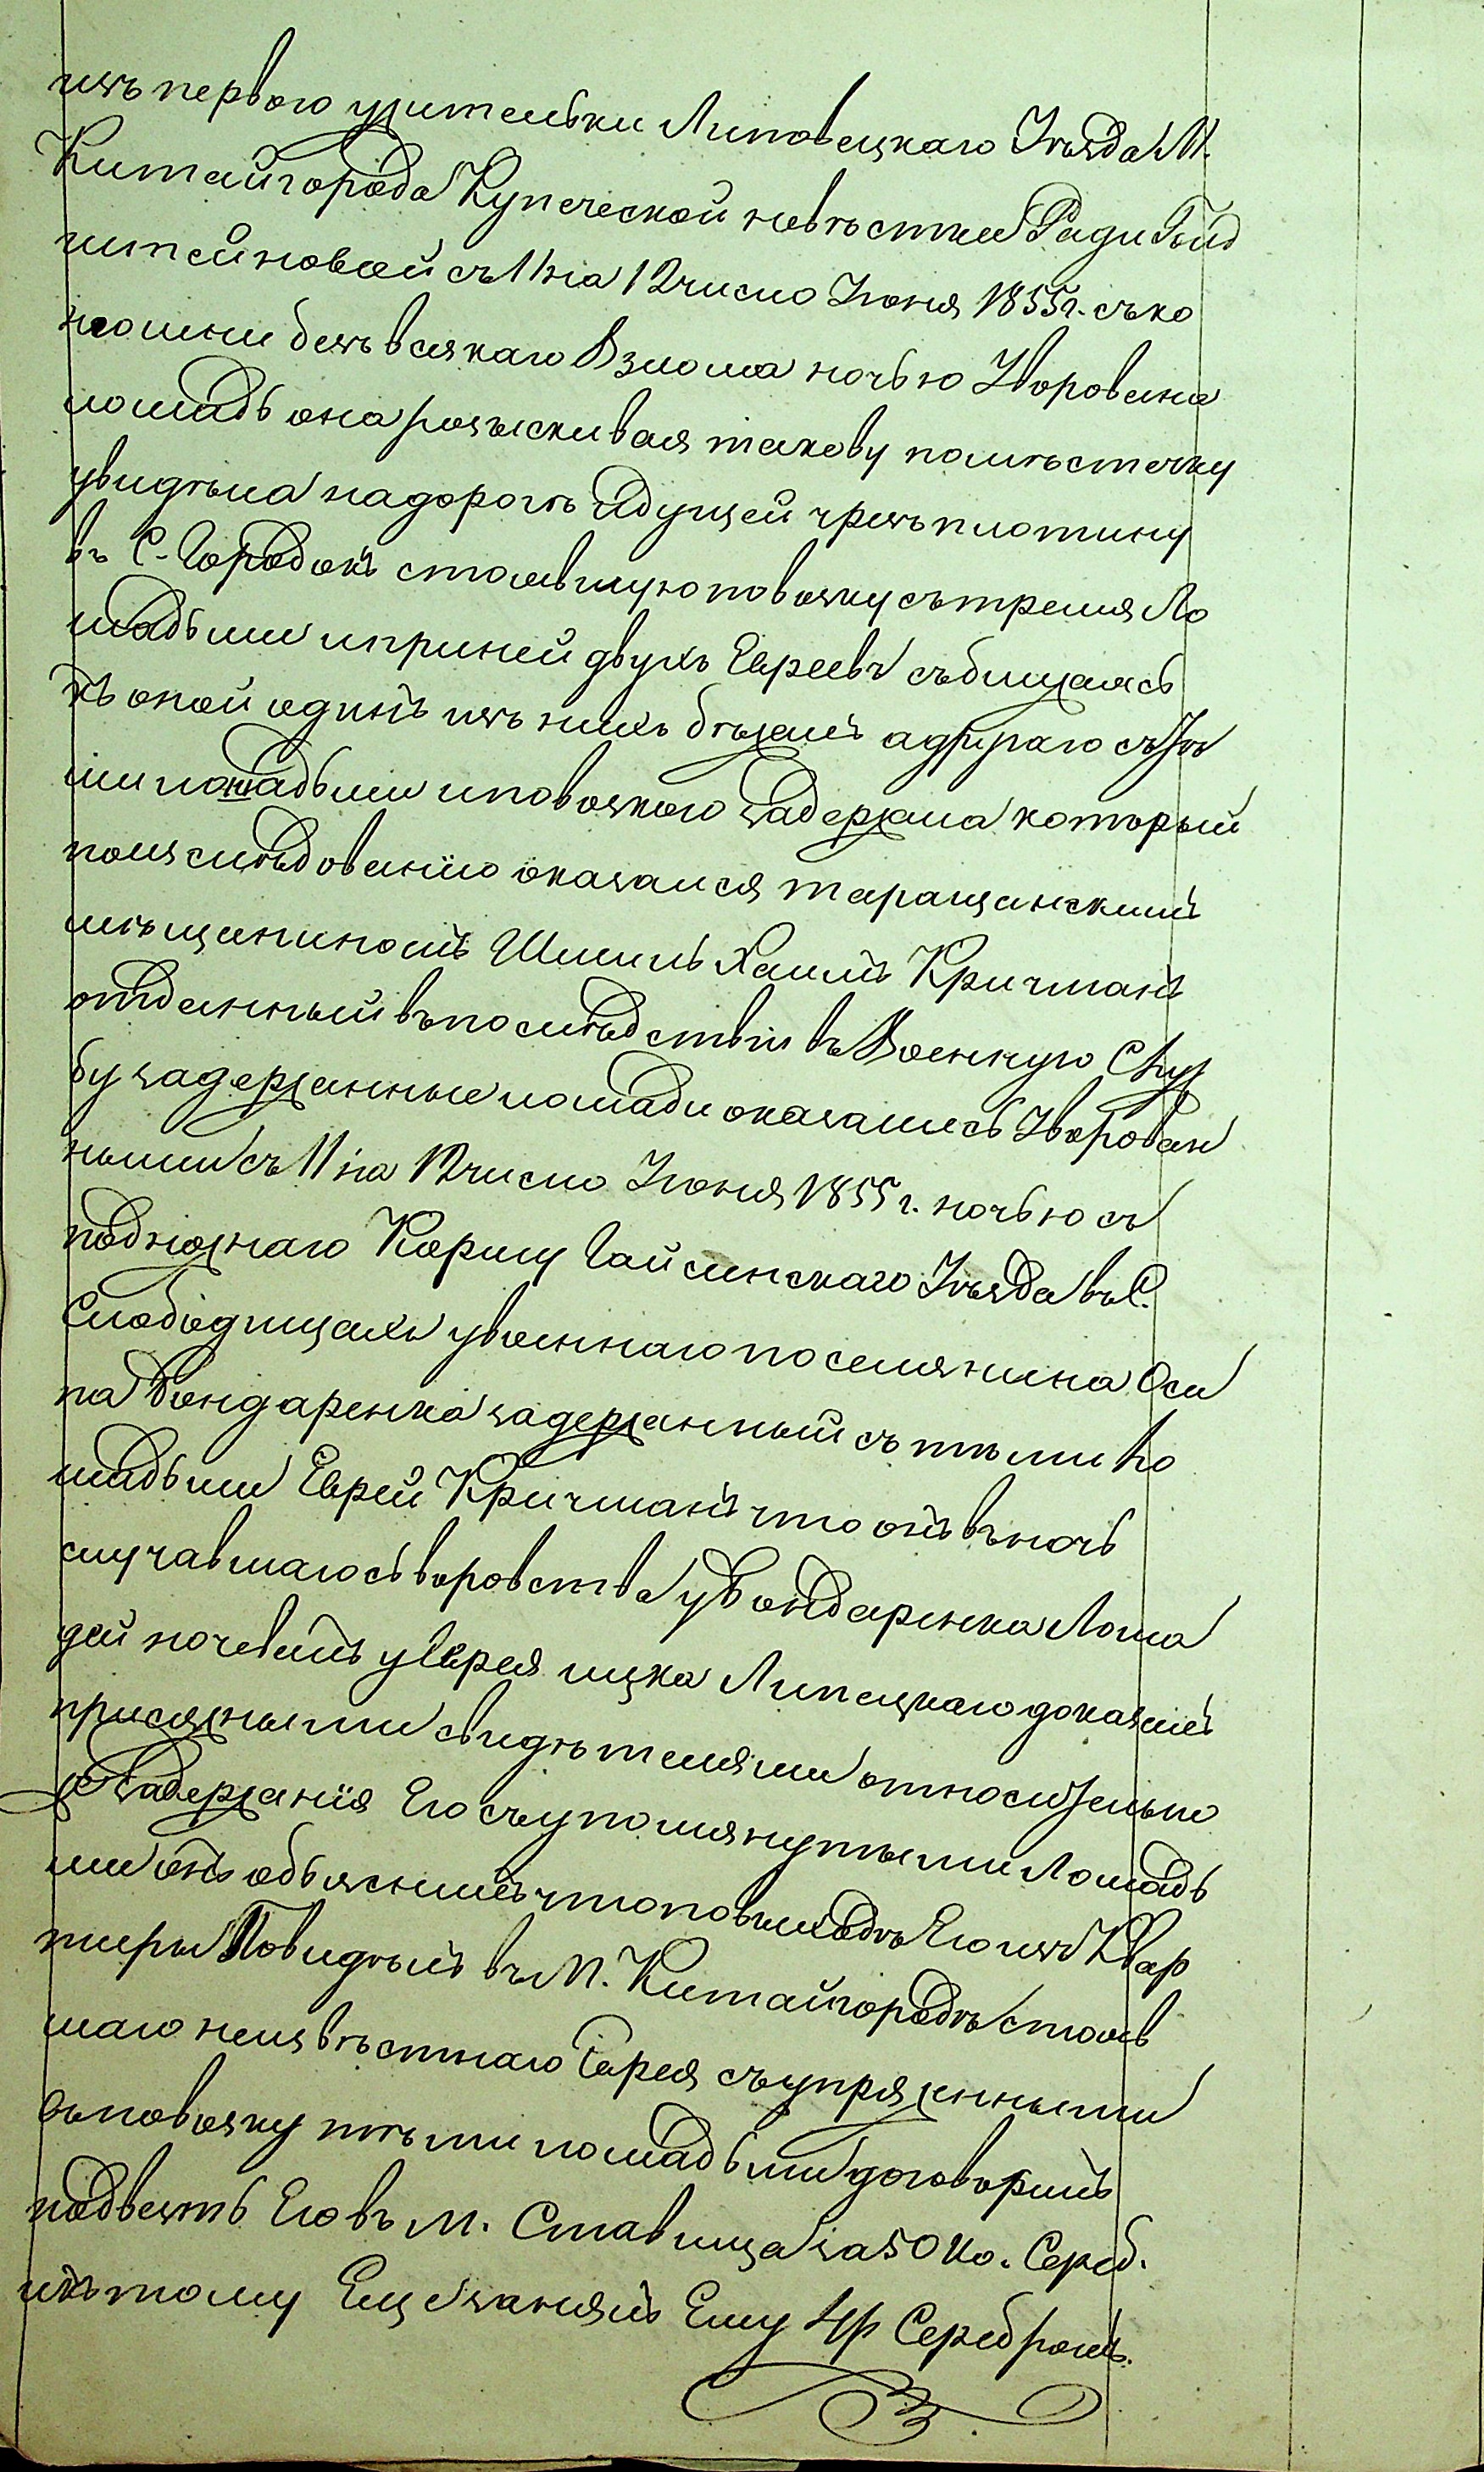 изъ первого жительки Липовецкаго Уѣзда М.
Китайгорода Купеческой невѣстки Ради Гольд
штейновой съ 11 на 12 число Іюня 1855 г. съ ко
нюшни безъ всякаго Взлома ночью Уворована
лошадь она розыскивая такову по мѣстечку
увидѣла на дорогѣ Идущей чрезъ плотину
въ С. Городокъ стоявшую повозку съ тремя Ло
шадьми и при ней двухъ Евреевъ сближаясь
къ оной одинъ изъ нихъ бѣжалъ а другаго съ Трѣ
ми лошадьми и повозкою задержала который
по изслѣдованію оказался таращанскимъ
мѣщаниномъ Шмиль Хаимъ Кричманъ
отданный въ послѣдствіи въ Военную Служ
бу задержанные лошади оказались Уворован
ными съ 11 на 12 число Іюня 1855 г. ночью съ
подножнаго Корму Гайсинскаго Уѣзда въ С.
Слободищахъ у военнаго поселянина Оси
па Бондаренка задержанный съ тѣми Ло
шадьми Еврей Кричманъ что онъ въ ночь
случавшагось воровства у Бондаренка Лоша
дей ночевалъ у Еврея ицка Липецкаго доказалъ
присяжными свидѣтелями относительно
же Задержанія Его съ упомянутыми Лошадь
ми онъ объяснилъ что по выходѣ Его изъ Квар
тиры Повидѣлъ въ М. Китайгородѣ стояв
шаго неизвѣстнаго Еврея съ упряженными
въ повозку тѣми лошадьми договорилъ
подвезть Его въ м. Ставища за 50 Ко. Сереб.
и къ тому Еще занялъ Ему 4 р Серебромъ.